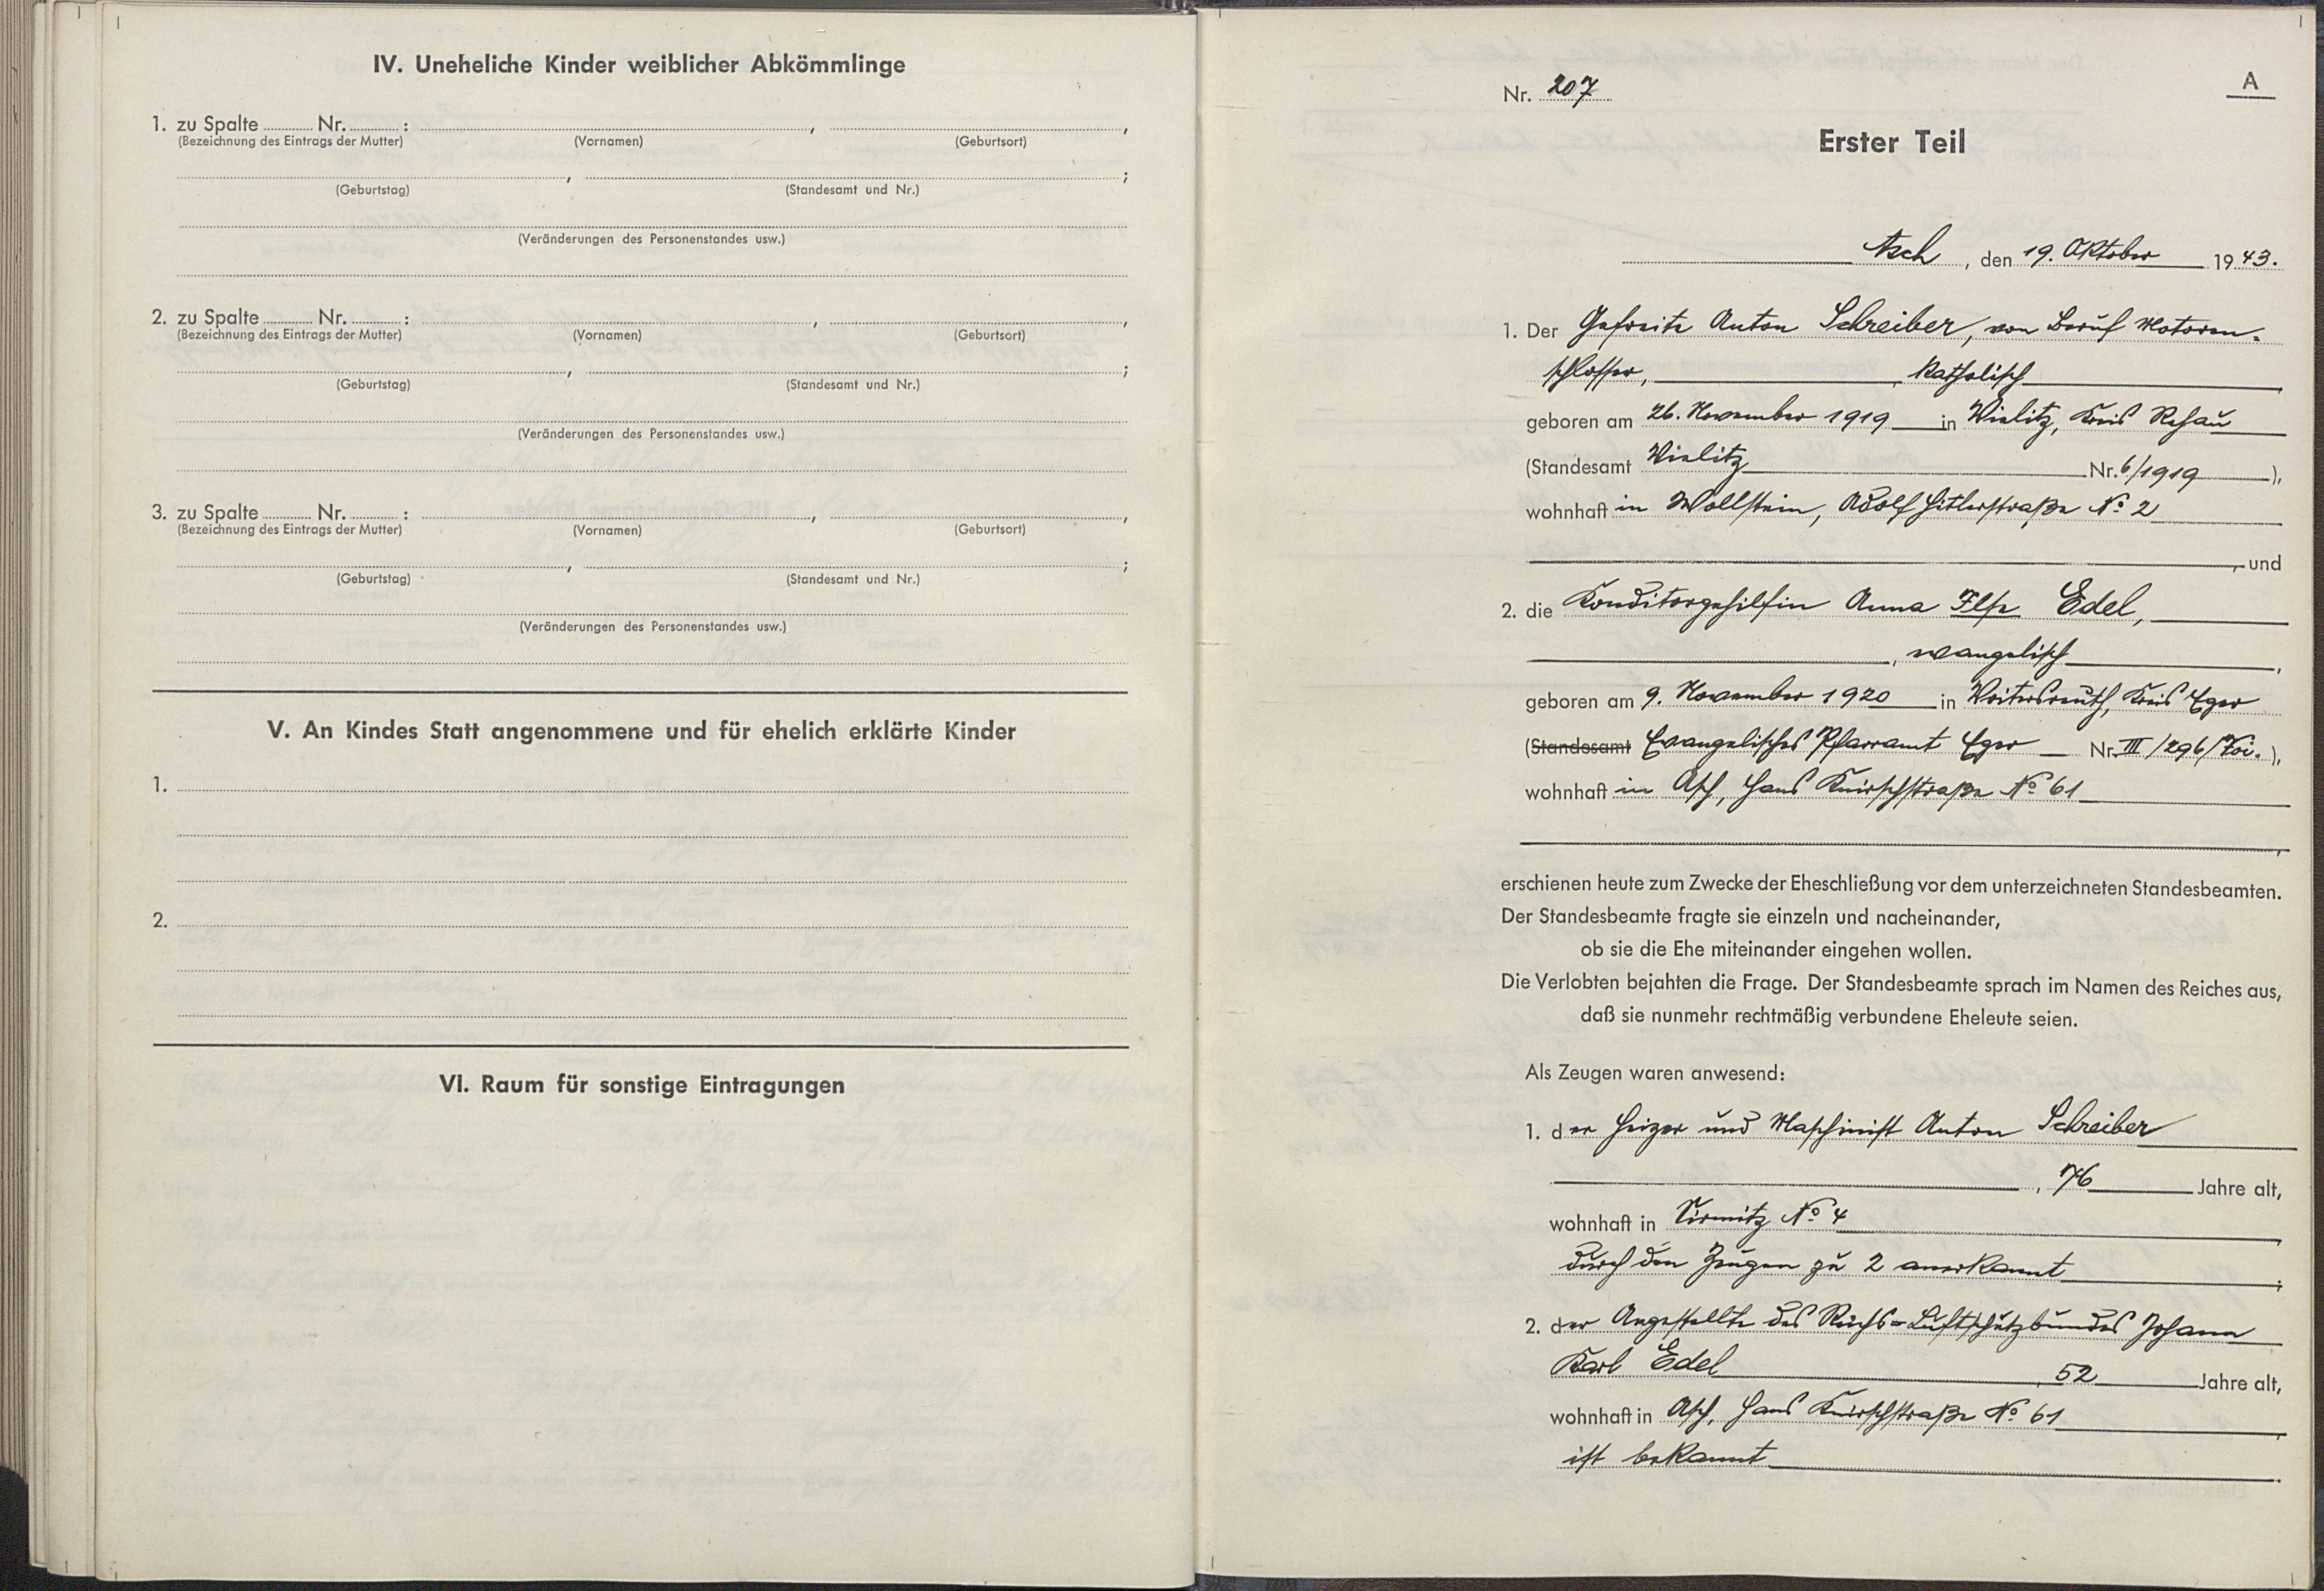 IV. Uneheliche Kinder weiblicher Abkömmlinge
1. zu Spalte Nr. : , ,
(Bezeichnung des Eintrags der Mutter) (Vornamen) (Geburtsort)
, ;
(Geburtstag) (Standesamt und Nr.)
(Veränderungen des Personenstandes usw.)
2. zu Spalte Nr. : , ,
(Bezeichnung des Eintrags der Mutter) (Vornamen) (Geburtsort)
, ;
(Geburtstag) (Standesamt und Nr.)
(Veränderungen des Personenstandes usw.)
3. zu Spalte Nr. : , ,
(Bezeichnung des Eintrags der Mutter) (Vornamen) (Geburtsort)
, ;
(Geburtstag) (Standesamt und Nr.)
(Veränderungen des Personenstandes usw.)
V. An Kindes Statt angenommene und für ehelich erklärte Kinder
1.
2.
VI. Raum für sonstige Eintragungen
A
Nr. 207
Erster Teil
Asch, den 19. Oktober 1943.
1. Der Gefreite Anton Schreiber, von Beruf Motoren-
schlosser, , katholisch ,
geboren am 26. November 1919 in Wielitz, Kreis Rehau
(Standesamt Wielitz Nr. 6/1919 ),
wohnhaft in Wollstein, Adolf Hitlerstraße No 2
, und
2. die Konditorgehilfin Anna Ilse Edel,
, evangelisch ,
geboren am 9. November 1920 in Voitersreuth, Kreis Eger
(Standesamt Evangelisches Pfarramt Eger Nr. III/296/Voi. ),
wohnhaft in Asch, Hans Knirschstraße No 61
,
erschienen heute zum Zwecke der Eheschließung vor dem unterzeichneten Standesbeamten.
Der Standesbeamte fragte sie einzeln und nacheinander,
ob sie die Ehe miteinander eingehen wollen.
Die Verlobten bejahten die Frage. Der Standesbeamte sprach im Namen des Reiches aus,
daß sie nunmehr rechtmäßig verbundene Eheleute seien.
Als Zeugen waren anwesend:
1. der Heizer und Maschinist Anton Schreiber
, 76 Jahre alt,
wohnhaft in No 4 ,
durch den Zeugen zu 2 anerkannt ;
2. der Angestellte des Reichs-Luftschutzbundes Johann
Karl Edel , 52 Jahre alt,
wohnhaft in Asch, Hans Knirschstraße No 61 ,
ist bekannt .